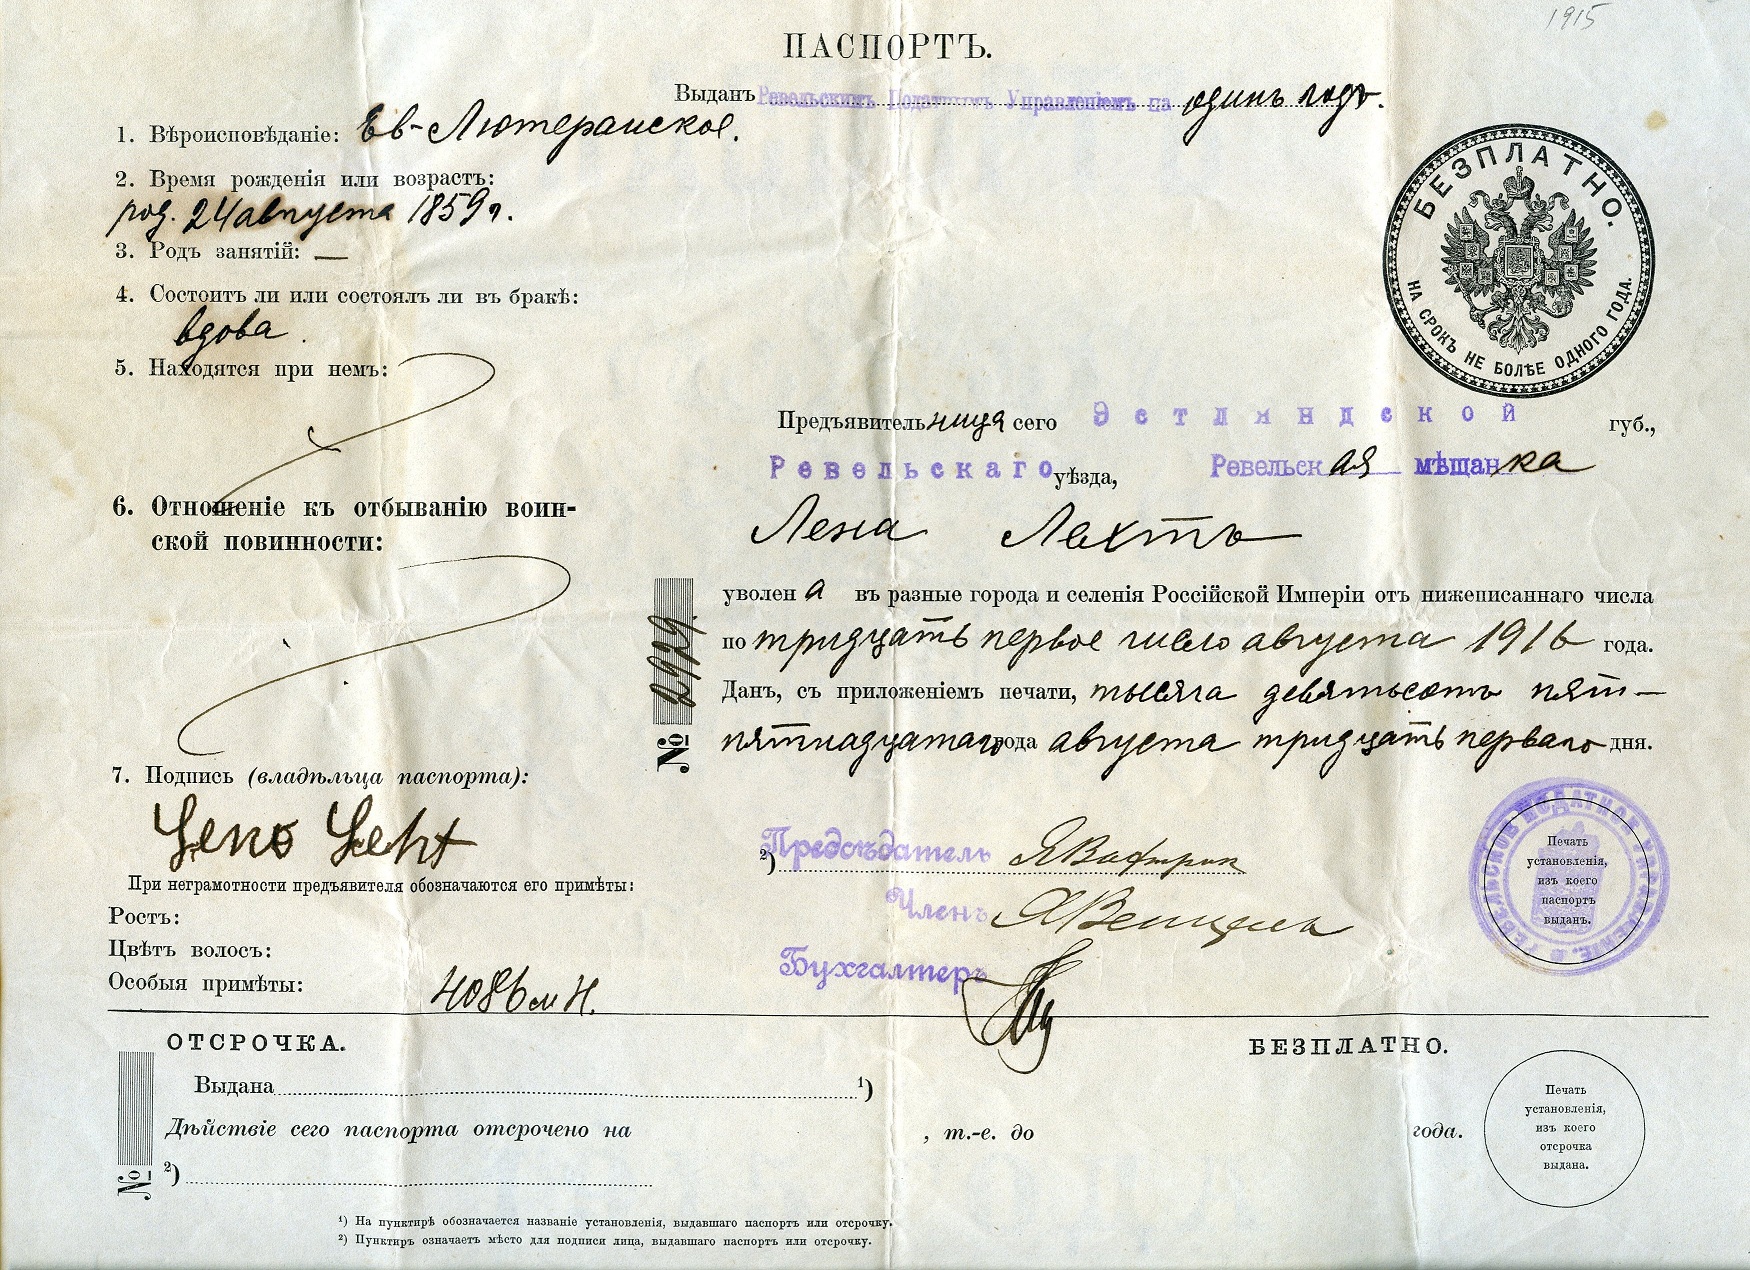 1915
ПАСПОРТЪ.
Выданъ Ревельскимъ Податнымъ Управленіемъ на одинъ годъ.
1. Вѣроисповѣданіе: Ев-Лютеранское.
2. Время рожденія или возрастъ:
род. 24 августа 1859 г.
3. Родъ занятій: —
4. Состоитъ ли или состоялъ ли въ бракѣ:
вдова.
5. Находятся при немъ:
6. Отношеніе къ отбыванію воин-
ской повинности:
7. Подпись (владѣльца паспорта):
При неграмотности предъявителя обозначаются его примѣты:
Ростъ:
Цвѣтъ волосъ:
Особыя примѣты:
БЕЗПЛАТНО.
НА СРОКЪ НЕ БОЛѢЕ ОДНОГО ГОДА.
Предъявительница сего Эстляндской губ.,
Ревельскаго уѣзда, Ревельская мѣщанка
Лена Лехтъ
уволена въ разные города и селенія Россійской Имперіи отъ нижеписаннаго числа
по тридцать первое число августа 1916 года.
Данъ, съ приложеніемъ печати, тысяча девятьсотъ пят-
пятнадцатаго года августа тридцать перваго дня.
№ 2729.
2) Предсѣдатель
Членъ
Бухгалтеръ
РЕВЕЛЬСКОЕ ПОДАТНОЕ УПРАВЛЕНІЕ.
Печать
установленія,
изъ коего
паспортъ
выданъ.
ОТСРОЧКА.
БЕЗПЛАТНО.
Выдана 1)
Дѣйствіе сего паспорта отсрочено на , т.-е. до года.
№ 2)
Печать
установленія,
изъ коего
отсрочка
выдана.
1) На пунктирѣ обозначается названіе установленія, выдавшаго паспортъ или отсрочку.
2) Пунктиръ означаетъ мѣсто для подписи лица, выдавшаго паспортъ или отсрочку.